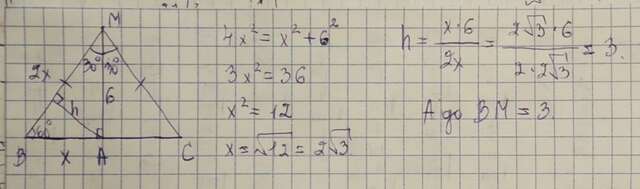 M
30° 30°
2x
6
h
60°
B x A C
4x² = x² + 6²
3x² = 36
x² = 12
x = √12 = 2√3
h = x·6/2x = 2√3·6/2·2√3 = 3.
A до BM = 3